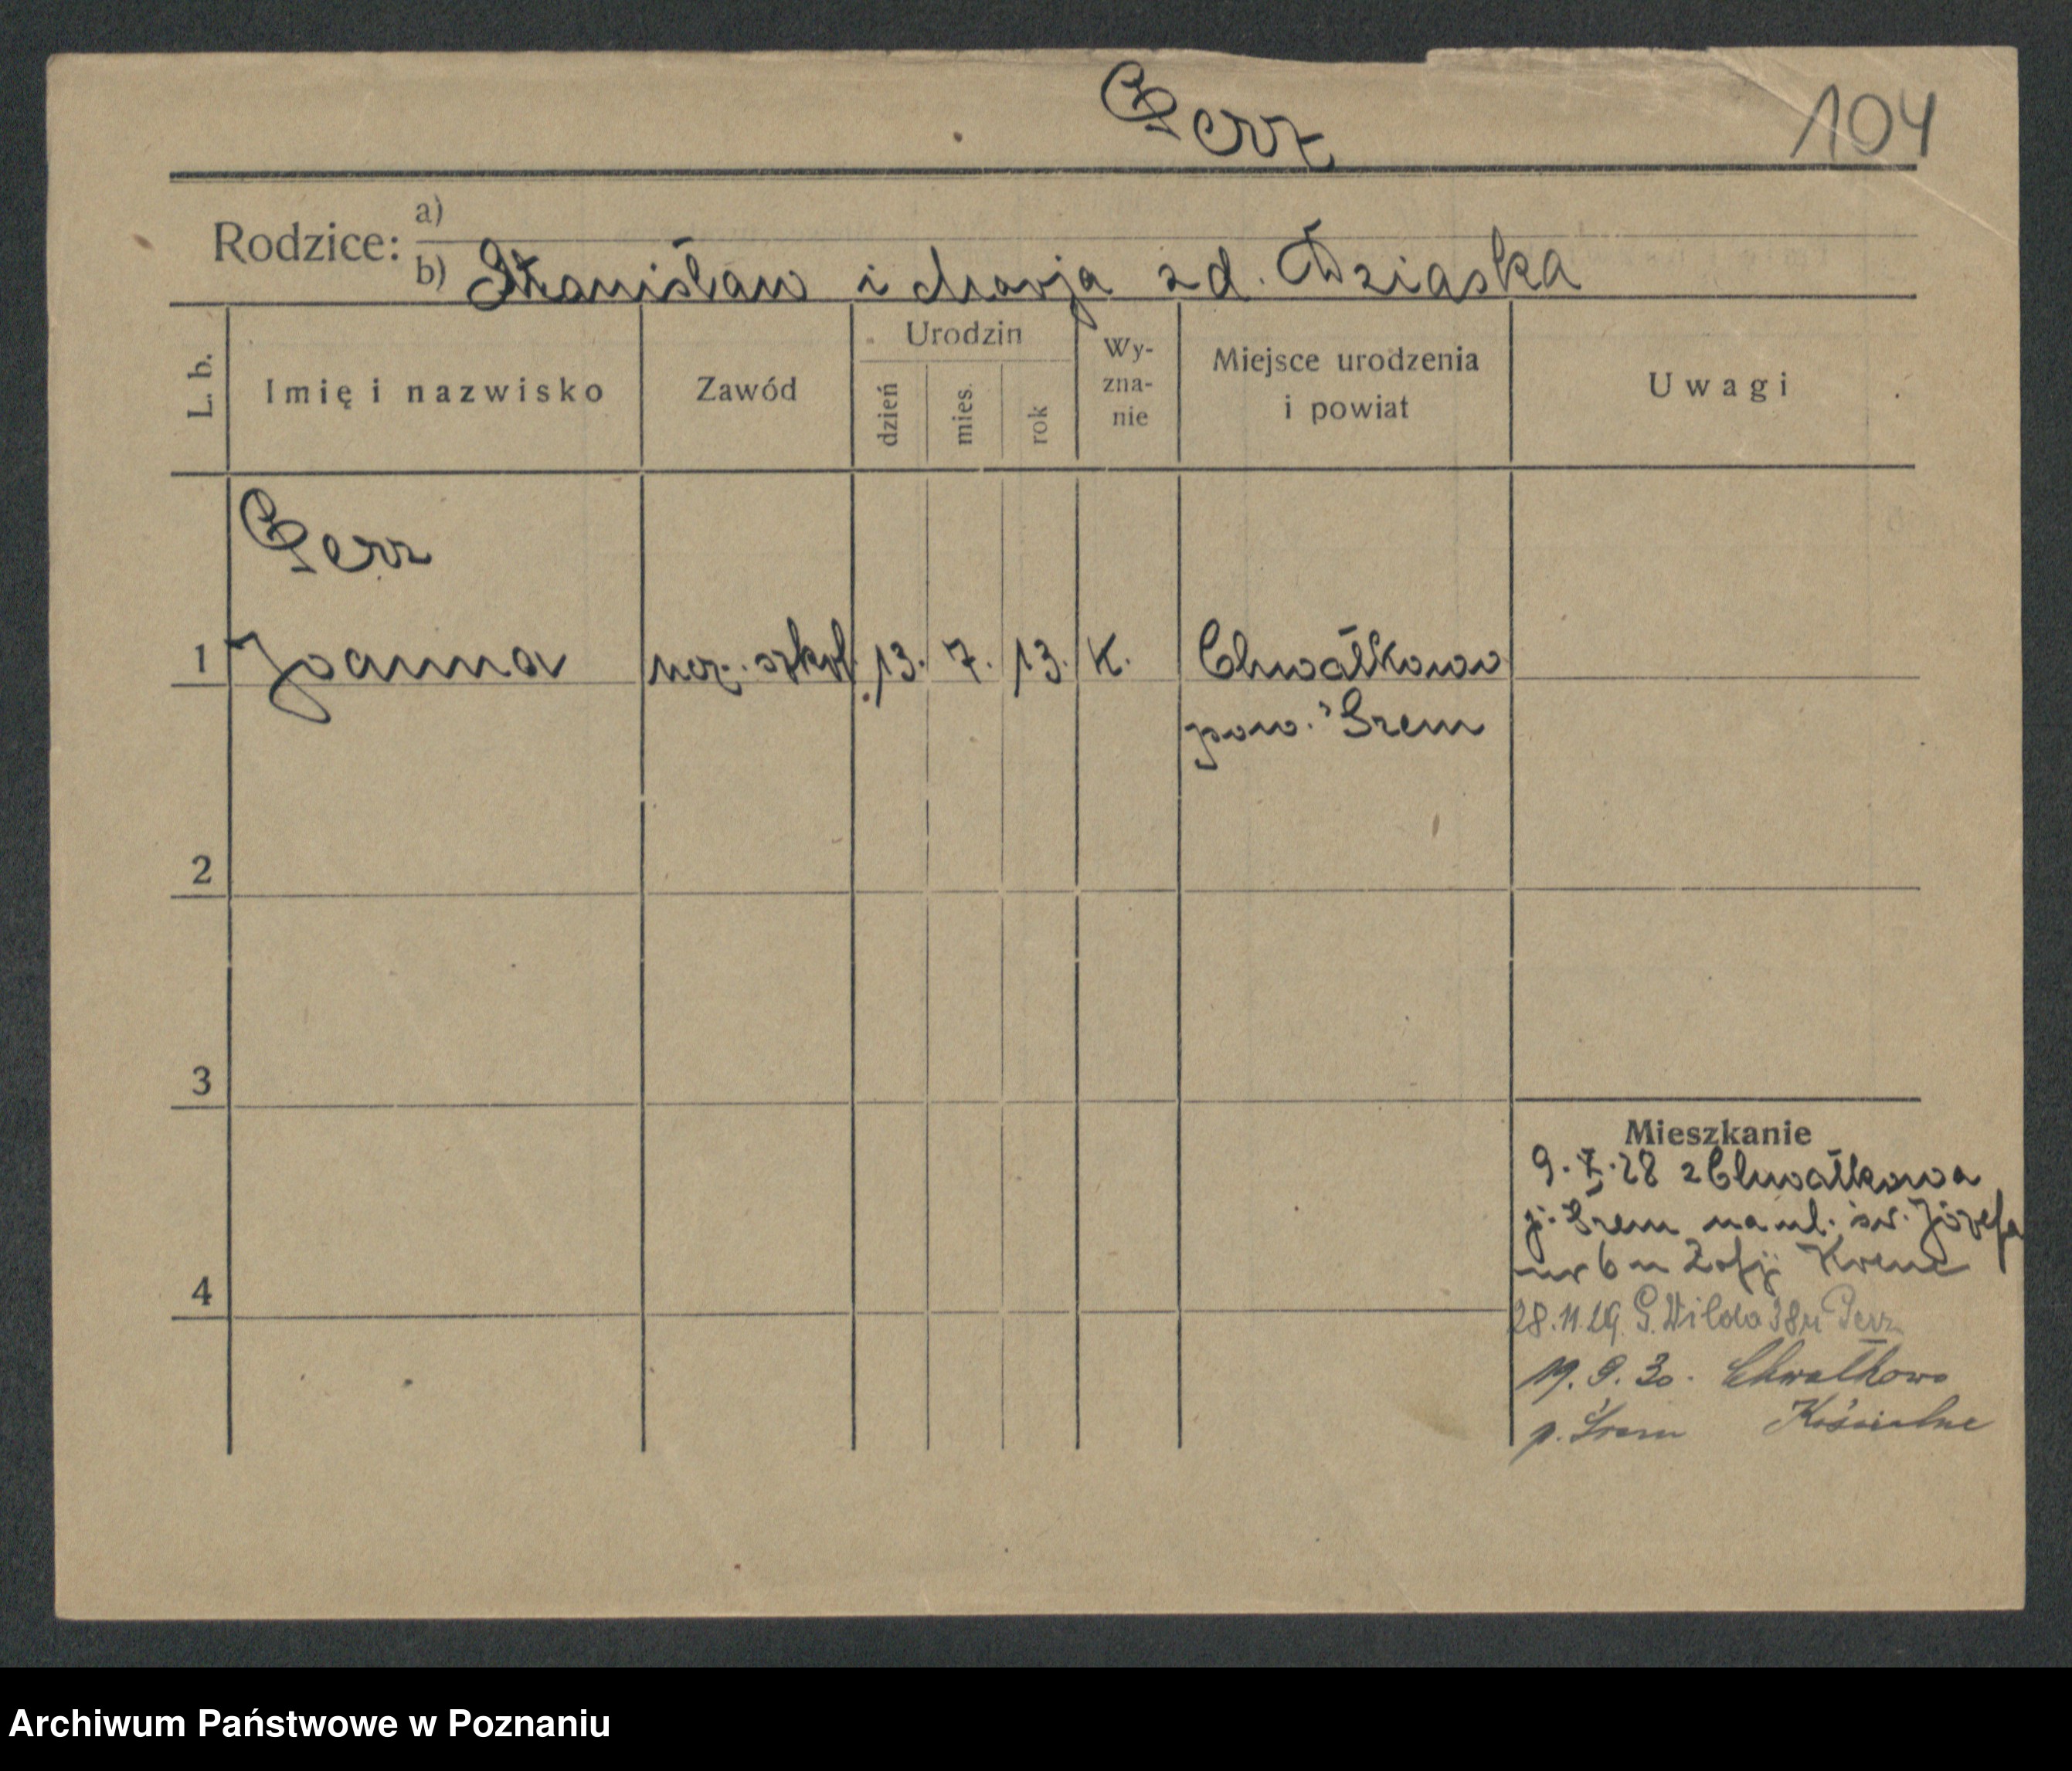 Perz
104
Rodzice: a)
b) Stanisław i Marja zd. Dziaska
L. b. Imię i nazwisko Zawód Urodzin dzień mies. rok Wy-zna-nie Miejsce urodzenia i powiat Uwagi
Perz
1 Joanna ucz. szkol. 13. 7. 13. K. Chwałkowo
pow. Śrem
2
3
4
Mieszkanie
9. X. 28 z Chwałkowa
p. Śrem na ul. św. Józefa
nr 6 u Zofji
28.11.29. G. Wilda 38 u Perz
19. 9. 30. Chwałkowo
p. Śrem Kościelne
Archiwum Państwowe w Poznaniu